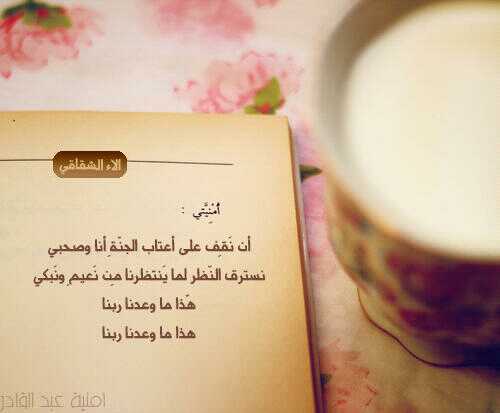 الاء الشقاقي
أُمْنِيَّتي :
أن نَقِف على أعتاب الجنّةِ أنا وصحبي
نسترق النّظر لما يَنتظرنا مِن نَعيمٍ ونَبكي
هَذا ما وعدنا ربنا
هذا ما وعدنا ربنا
امنية عبد القادر